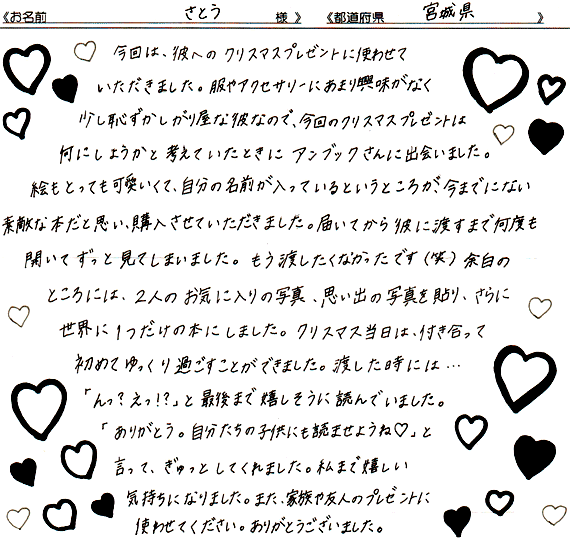 《お名前 さとう 様 》 《都道府県 宮城県 》
今回は、彼へのクリスマスプレゼントに使わせて
いただきました。服やアクセサリーにあまり興味がなく
少し恥ずかしがり屋な彼なので、今回のクリスマスプレゼントは
何にしようかと考えていたときにアンブックさんに出会いました。
絵もとっても可愛いくて、自分の名前が入っているというところが、今までにない
素敵な本だと思い、購入させていただきました。届いてから彼に渡すまで何度も
開いてずっと見てしまいました。もう渡したくなかったです(笑)余白の
ところには、2人のお気に入りの写真、思い出の写真を貼り、さらに
世界に1つだけの本にしました。クリスマス当日は、付き合って
初めてゆっくり過ごすことができました。渡した時には…
「んっ?えっ!?」と最後まで嬉しそうに読んでいました。
「ありがとう。自分たちの子供にも読ませようね♡」と
言って、ぎゅっとしてくれました。私まで嬉しい
気持ちになりました。また、家族や友人のプレゼントに
使わせてください。ありがとうございました。